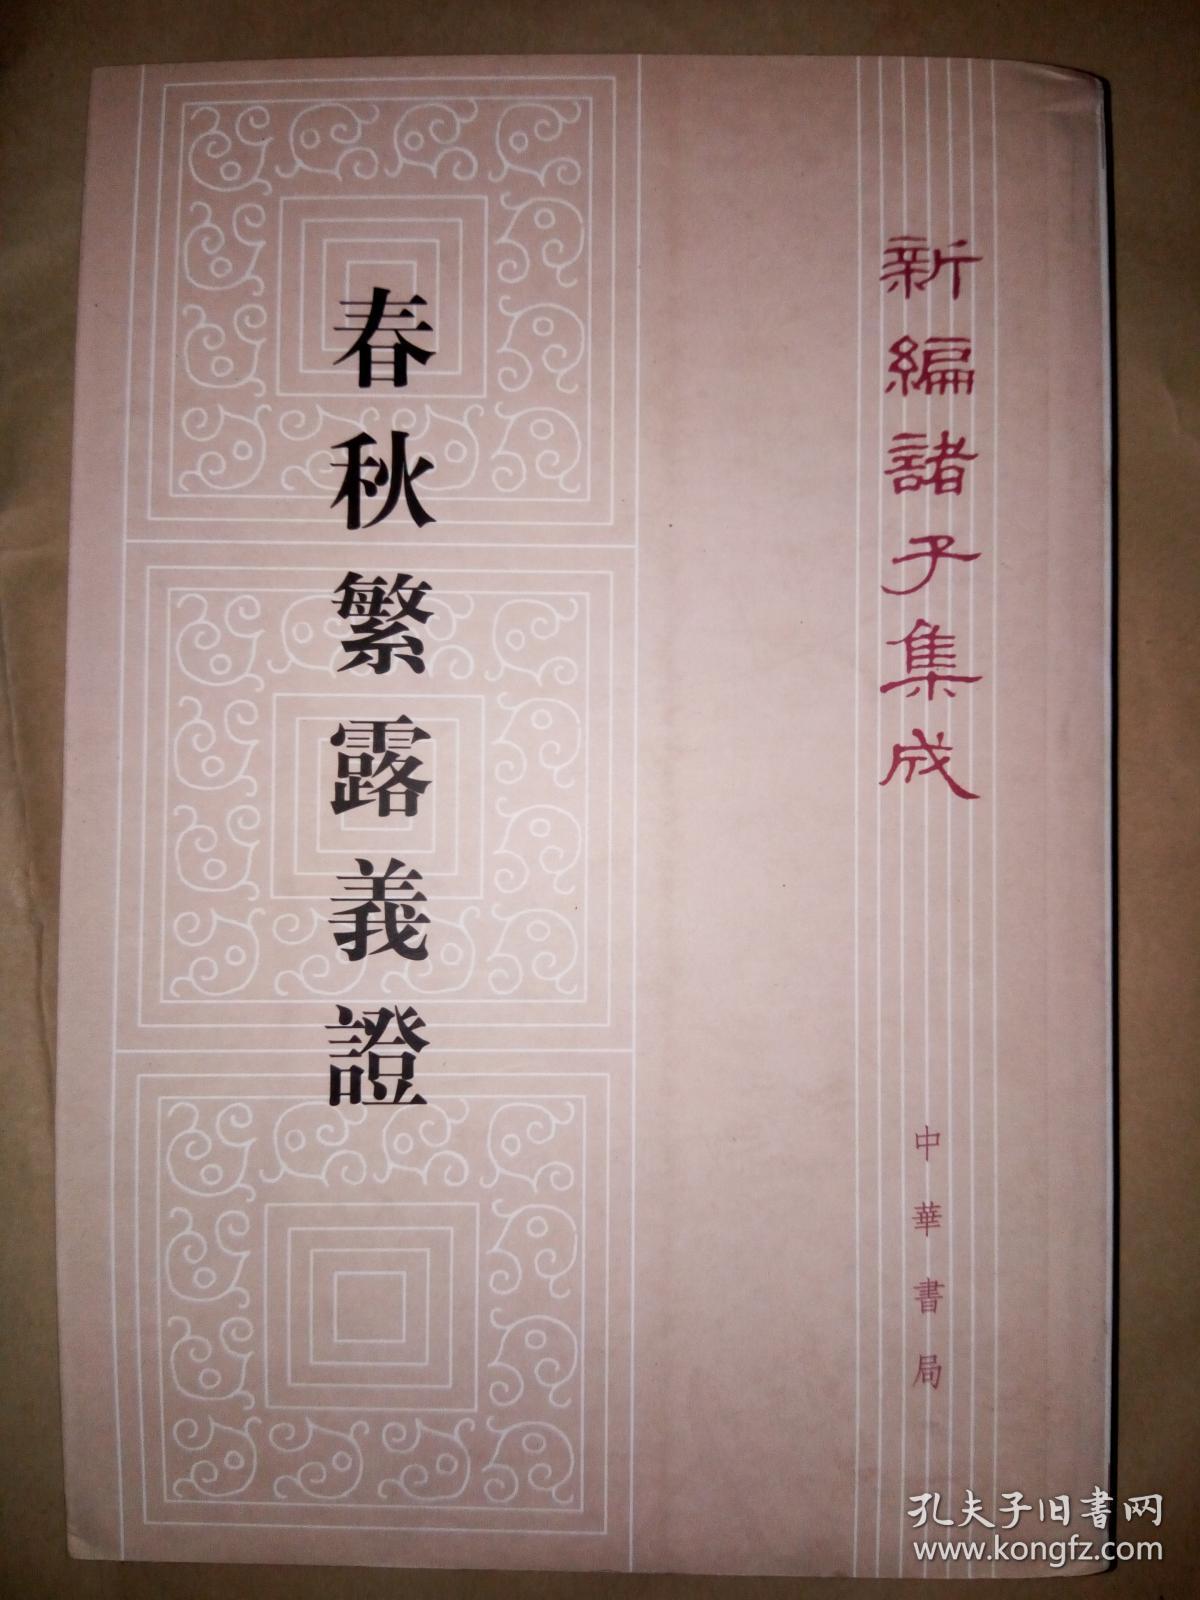 新編諸子集成
春秋繁露義證
中華書局
孔夫子旧書网
www.kongfz.com